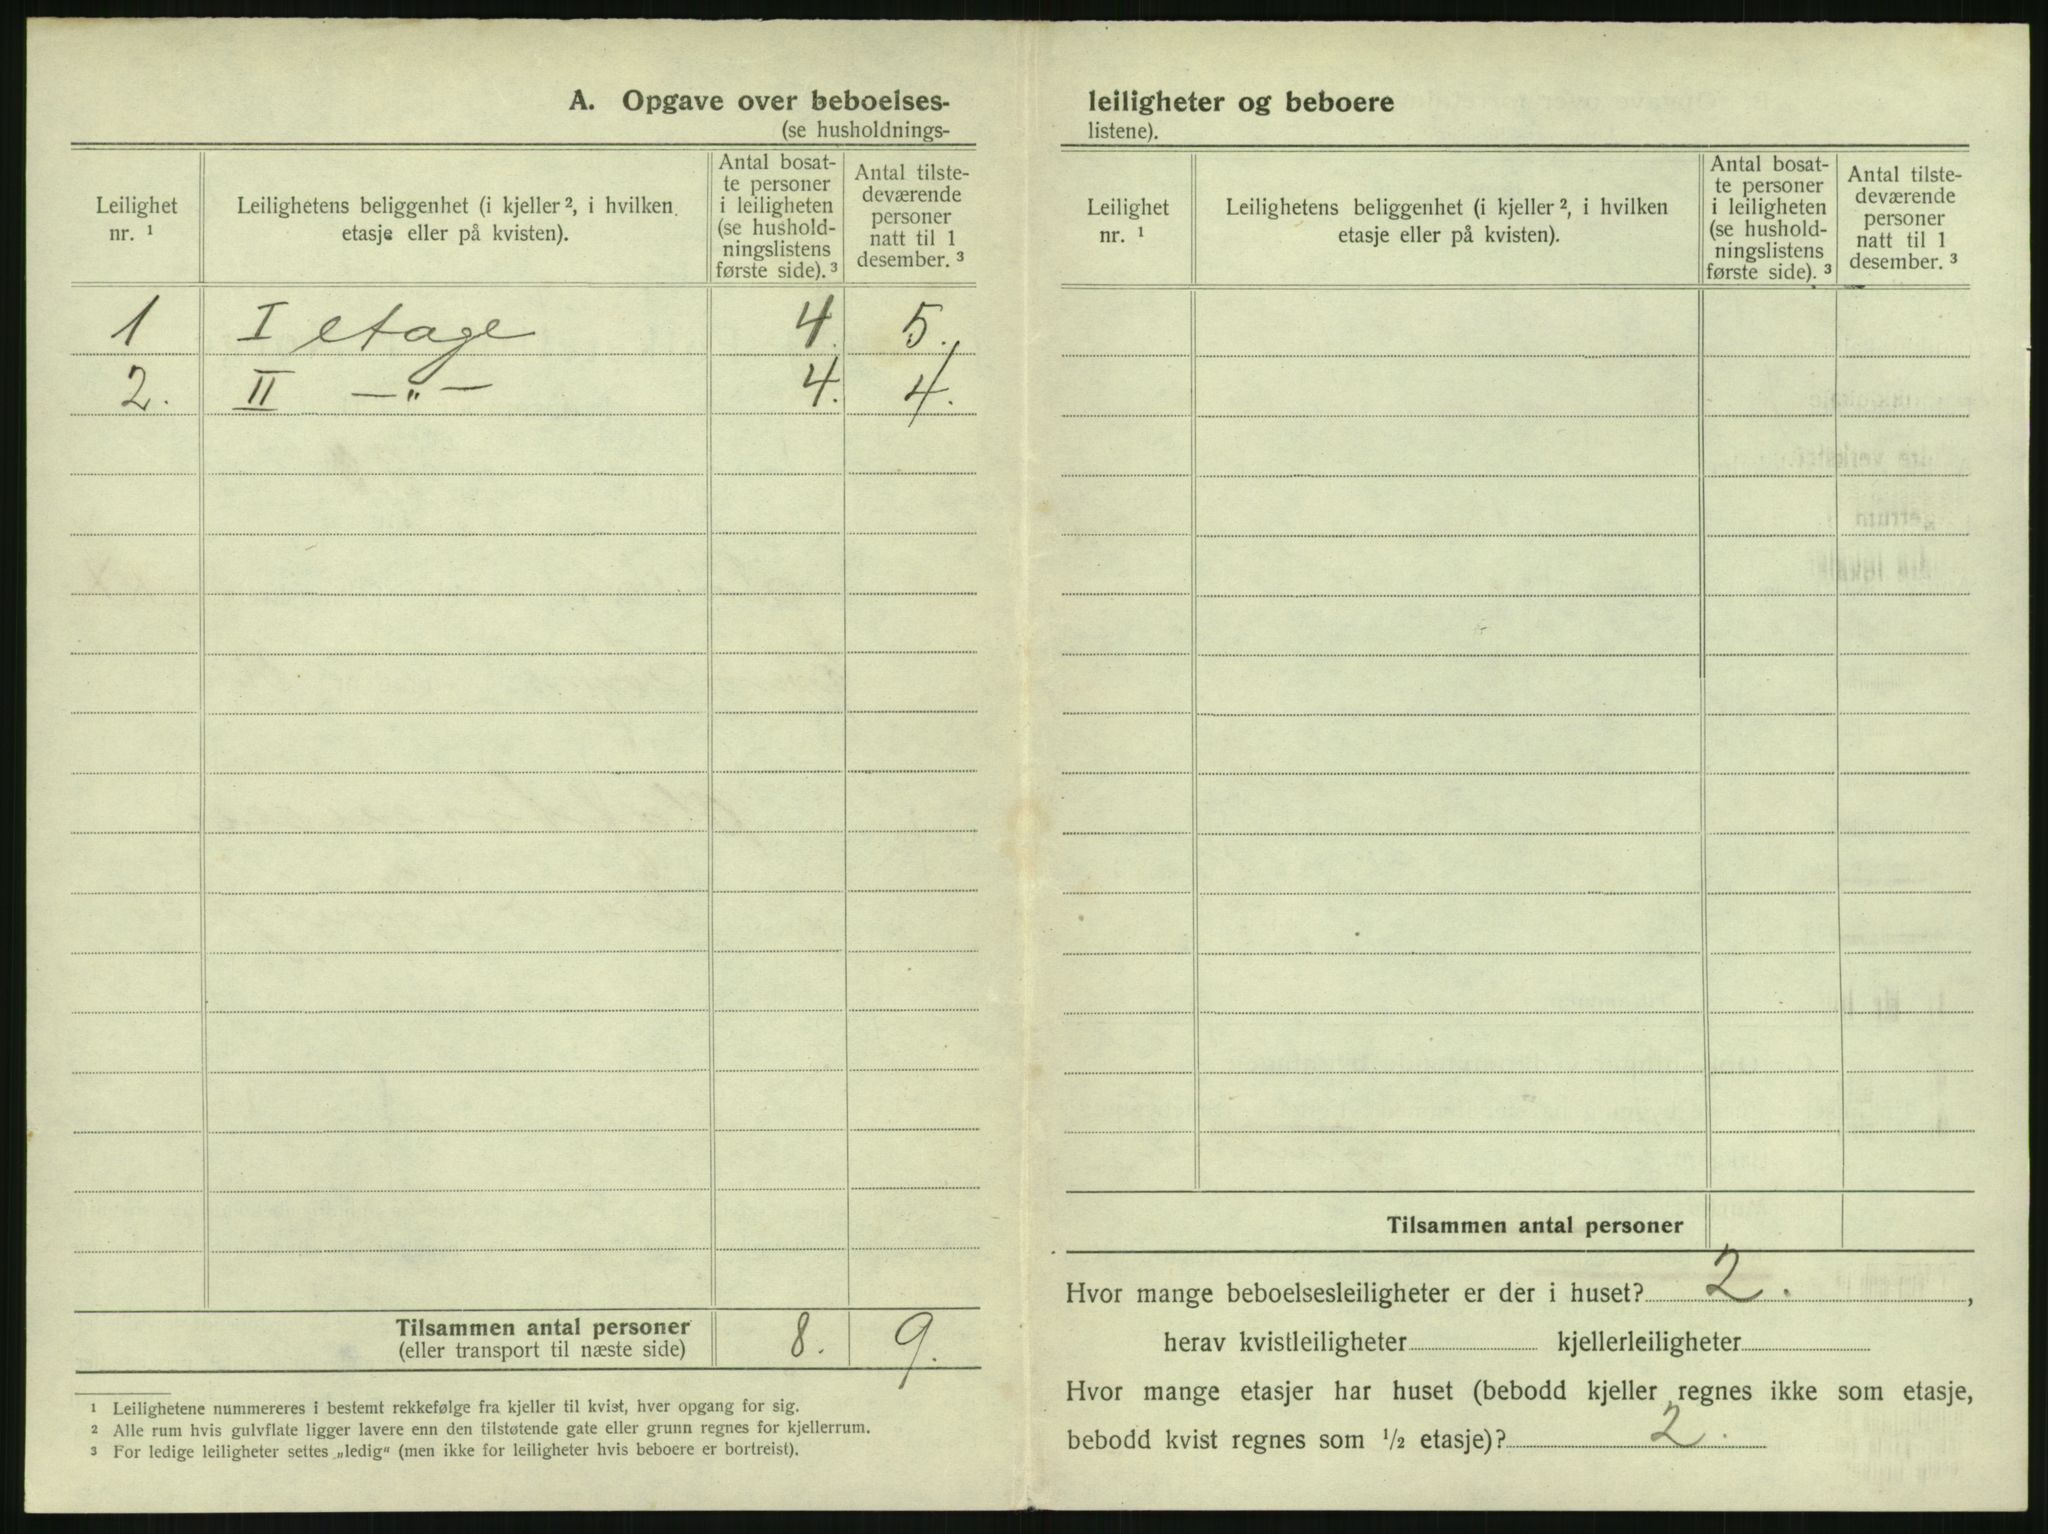 A. Opgave over beboelses-
(se husholdnings-
Leilighet
nr. ¹
Leilighetens beliggenhet (i kjeller ², i hvilken
etasje eller på kvisten).
Antal bosat-
te personer
i leiligheten
(se hushold-
ningslistens
første side). ³
Antal tilste-
deværende
personer
natt til 1
desember. ³
1 I etage 4. 5.
2. II —„— 4. 4.
Tilsammen antal personer 8. 9.
(eller transport til næste side)
¹ Leilighetene nummereres i bestemt rekkefølge fra kjeller til kvist, hver opgang for sig.
² Alle rum hvis gulvflate ligger lavere enn den tilstøtende gate eller grunn regnes for kjellerrum.
³ For ledige leiligheter settes „ledig“ (men ikke for leiligheter hvis beboere er bortreist).
leiligheter og beboere
listene).
Leilighet
nr. ¹
Leilighetens beliggenhet (i kjeller ², i hvilken
etasje eller på kvisten).
Antal bosat-
te personer
i leiligheten
(se hushold-
ningslistens
første side). ³
Antal tilste-
deværende
personer
natt til 1
desember. ³
Tilsammen antal personer
Hvor mange beboelsesleiligheter er der i huset? 2. ,
herav kvistleiligheter kjellerleiligheter
Hvor mange etasjer har huset (bebodd kjeller regnes ikke som etasje,
bebodd kvist regnes som ½ etasje)? 2.